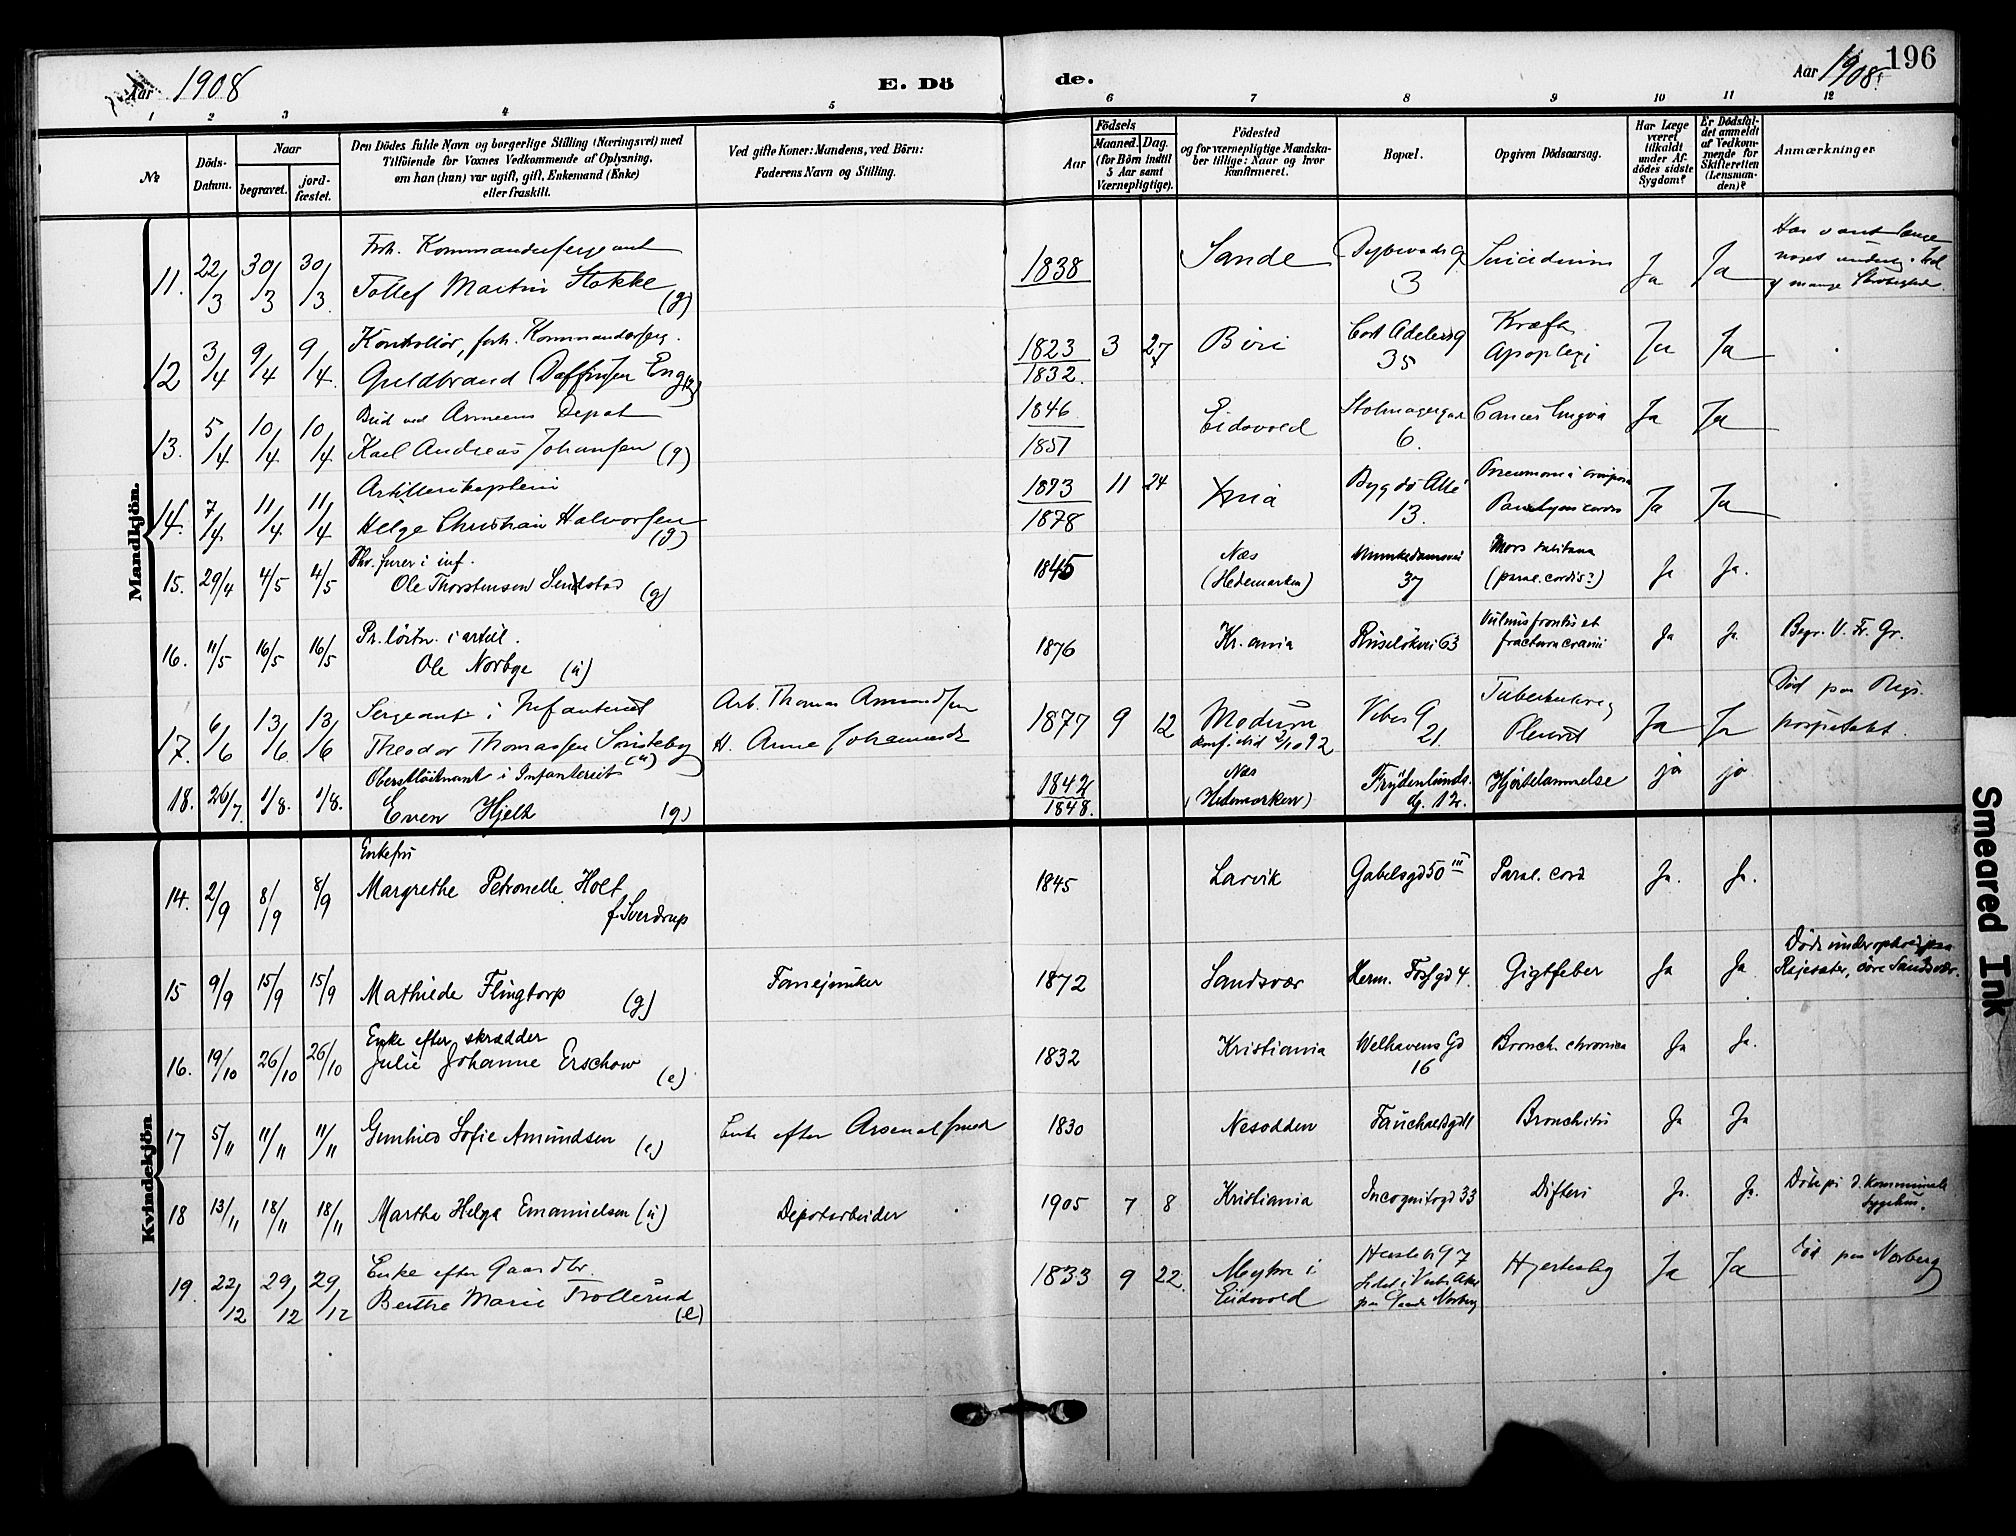 Aar 1908
E. Döde.
Aar 1908.
196
1 2 3 4 5 6 7 8 9 10 11 12
№
Döds-Datum.
Naar
begravet.
jord-fæstet.
Den Dödes fulde Navn og borgerlige Stilling (Næringsvei) med
Tilföiende for Voxnes Vedkommende af Oplysning,
om han (hun) var ugift, gift, Enkemand (Enke)
eller fraskilt.
Ved gifte Koner: Mandens, ved Börn:
Faderens Navn og Stilling.
Födsels
Aar
Maaned.
Dag.
(for Börn indtil
5 Aar samt
Værnepligtige).
Födested
og for værnepligtige Mandska-
ber tillige: Naar og hvor
konfirmeret.
Bopæl.
Opgiven Dödsaarsag.
Har Læge
været
tilkaldt
under Af-
dödes sidste
Sygdom?
Er Dödsfal-
det anmeldt
af Vedkom-
mende for
Skifteretten
(Lensman-
den)?
Anmærkninger
Mandkjön.
11. 22/3 30/3 30/3 Forh. Kommandersergeant
Tollef Martin Stokke (g) 1838 Sande 3 Suicidium Ja Ja
12 3/4 9/4 9/4 Kontrollör, forh. Kommanderserg.
Guldbrand Eng 1823 3 27 Biri Cort Adelersg 35 Kræft Apoplexi Ja Ja
1832.
13. 5/4 10/4 10/4 Bud ved Armeens Depot
Karl Andreas Johansen (g) 1846 Eidsvold 6. Cancer Ja Ja
1851
14. 7/4 11/4 11/4 Artillerikaptein
Helge Christian Halvorsen (g) 1893 11 24 Xnia Bygdö Allé 13. Ja Ja
1878
15. 29/4 4/5 4/5 furer i inf.
Ole Thorstensen (g) 1845 Næs (Hedemarken) Munkedamsvei 37 Mors subitana (paral. cordis?) Ja Ja.
16. 11/5 16/5 16/5 Pr. löitn. i artil.
Ole Norbye (u) 1876 Kr.ania Ruselökvei 63 Vulnus frontis et fractura cranii Ja Ja Begr. V. Fr. Gr.
17. 6/6 13/6 13/6 Sergeant i Infanteriet
Theodor Thomassen (u) Arb. Thomas Amundsen
H. Anne 1877 9 12 Modum 2/10 92 Vibes G 21. Pleurit Ja Ja Död paa Rigs-hospitalet.
18. 26/7. 1/8. 1/8. Oberstlöitnant i Infanteriet
Even Hjelt (g) 1842 Næs (Hedemarken) Frydenlunds-g. 12. Hjertelammelse ja ja
1848.
Kvindekjön
14. 2/9 8/9 8/9 Enkefru
Margrethe Petronelle Holt
f. Sverdrup 1845 Larvik Gabelsgd 50 III Paral. cord Ja. Ja.
15 9/9 15/9 15/9 Mathilde Flingtorp (g) 1872 Sandsvær Herm. Fossgd 4. Gigtfeber Ja Ja
16. 19/10 26/10 26/10 Enke efter skrædder
Julie Johanne Erschow (e) 1832 Kristiania Welhavens Gd 16 Bronch. chronica Ja Ja.
17 5/11 11/11 11/11 Gunhild Sofie Amundsen (e) Enke efter Arsenalsmed 1830 Nesodden Bronchitis Ja Ja
18 13/11 18/11 18/11 Marthe Helga Emanuelsen (u) Depotarbeider 1905 7 8 Kristiania Incognitogd 33 Difteri Ja. Ja. Död på d. kommunale Sygehus.
19. 22/12 29/12 29/12 Enke efter Gaardbr.
Berthe Marie Trollerud (e) 1833 9 22. i Eidsvold Hjerteslag Ja Ja Död paa Norberg
Smeared Ink